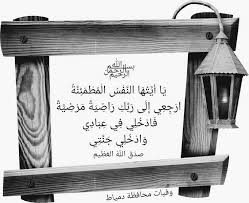 بسم الله الرحمن الرحيم
يَا أَيَّتُهَا النَّفْسُ المُطْمَئِنَّةُ
ارجِعِي إِلَى رَبِّكِ رَاضِيَةً مَّرْضِيَّةً
فَادْخُلِي فِي عِبَادِي
وَادْخُلِي جَنَّتِي
صدق الله العظيم
وفيات محافظة دمياط